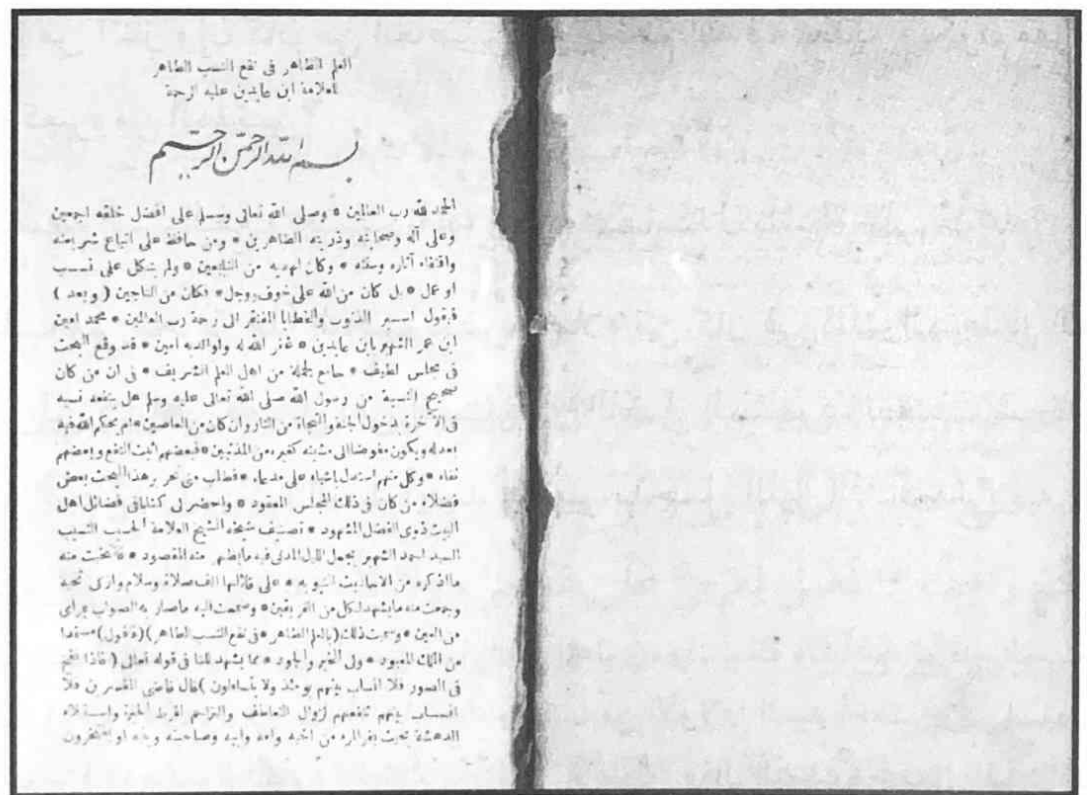 العلم الظاهر فى نفع النسب الطاهر
للعلامة ابن عابدين عليه الرحمة
بسم الله الرحمن الرحيم
الحمد لله رب العالمين * وصلى الله تعالى وسلم على افضل خلقه اجمعين
وعلى آله وصحابته وذريته الطاهرين * ومن حافظ على اتباع شريعته
واقتفاء آثاره وسنته * وكان لهديه من التابعين * ولم يتكل على نسب
او عمل * بل كان من الله على خوف ووجل * فكان من الناجين ( وبعد )
فيقول اسير الذنوب والخطايا المفتقر الى رحمة رب العالمين * محمد امين
ابن عمر الشهير بابن عابدين * غفر الله له ولوالديه امين * قد وقع البحث
فى مجلس لطيف * جامع لجملة من اهل العلم الشريف * فى ان من كان
صحيح النسبة من رسول الله صلى الله تعالى عليه وسلم هل ينفعه نسبه
فى الآخرة بدخول الجنة والنجاة من النار وان كان من العاصين * ام يحكم الله فيه
بعدله ويكون مفوضا الى مشيئته كغيره من المذنبين * فبعضهم اثبت النفع وبعضهم
نفاه * وكل منهم استدل باشياء على مدعاه * فطلب منى تحرير هذا البحث بعض
فضلاء من كان فى ذلك المجلس المعقود * واحضر لى كتابا فى فضائل اهل
البيت ذوى الفضل المشهود * تصنيف شيخه الشيخ العلامة الحسيب النسيب
السيد احمد الشهير بجمل الليل المدنى فيه ما يظهر منه المقصود * فانتخبت منه
ما اذكره من الاحاديث النبويه * على قائلها الف صلاة وسلام وازكى تحيه
وجمعت منه ما يشهد لكل من الفريقين * وضممت اليه ما صار به الصواب برأى
من العين * وسميت ذلك (بالعلم الظاهر * فى نفع النسب الطاهر) (فاقول) مستمدا
من الملك المعبود * ولى الخير والجود * مما يشهد لنا فى قوله تعالى ( فاذا نفخ
فى الصور فلا انساب بينهم يومئذ ولا يتساءلون ) قال قاضى المفسرين فلا
انساب بينهم تنفعهم لزوال التعاطف والتراحم لفرط الحيرة واستيلاء
الدهشة بحيث يفر المرء من اخيه وامه وابيه وصاحبته وبنيه او يفتخرون